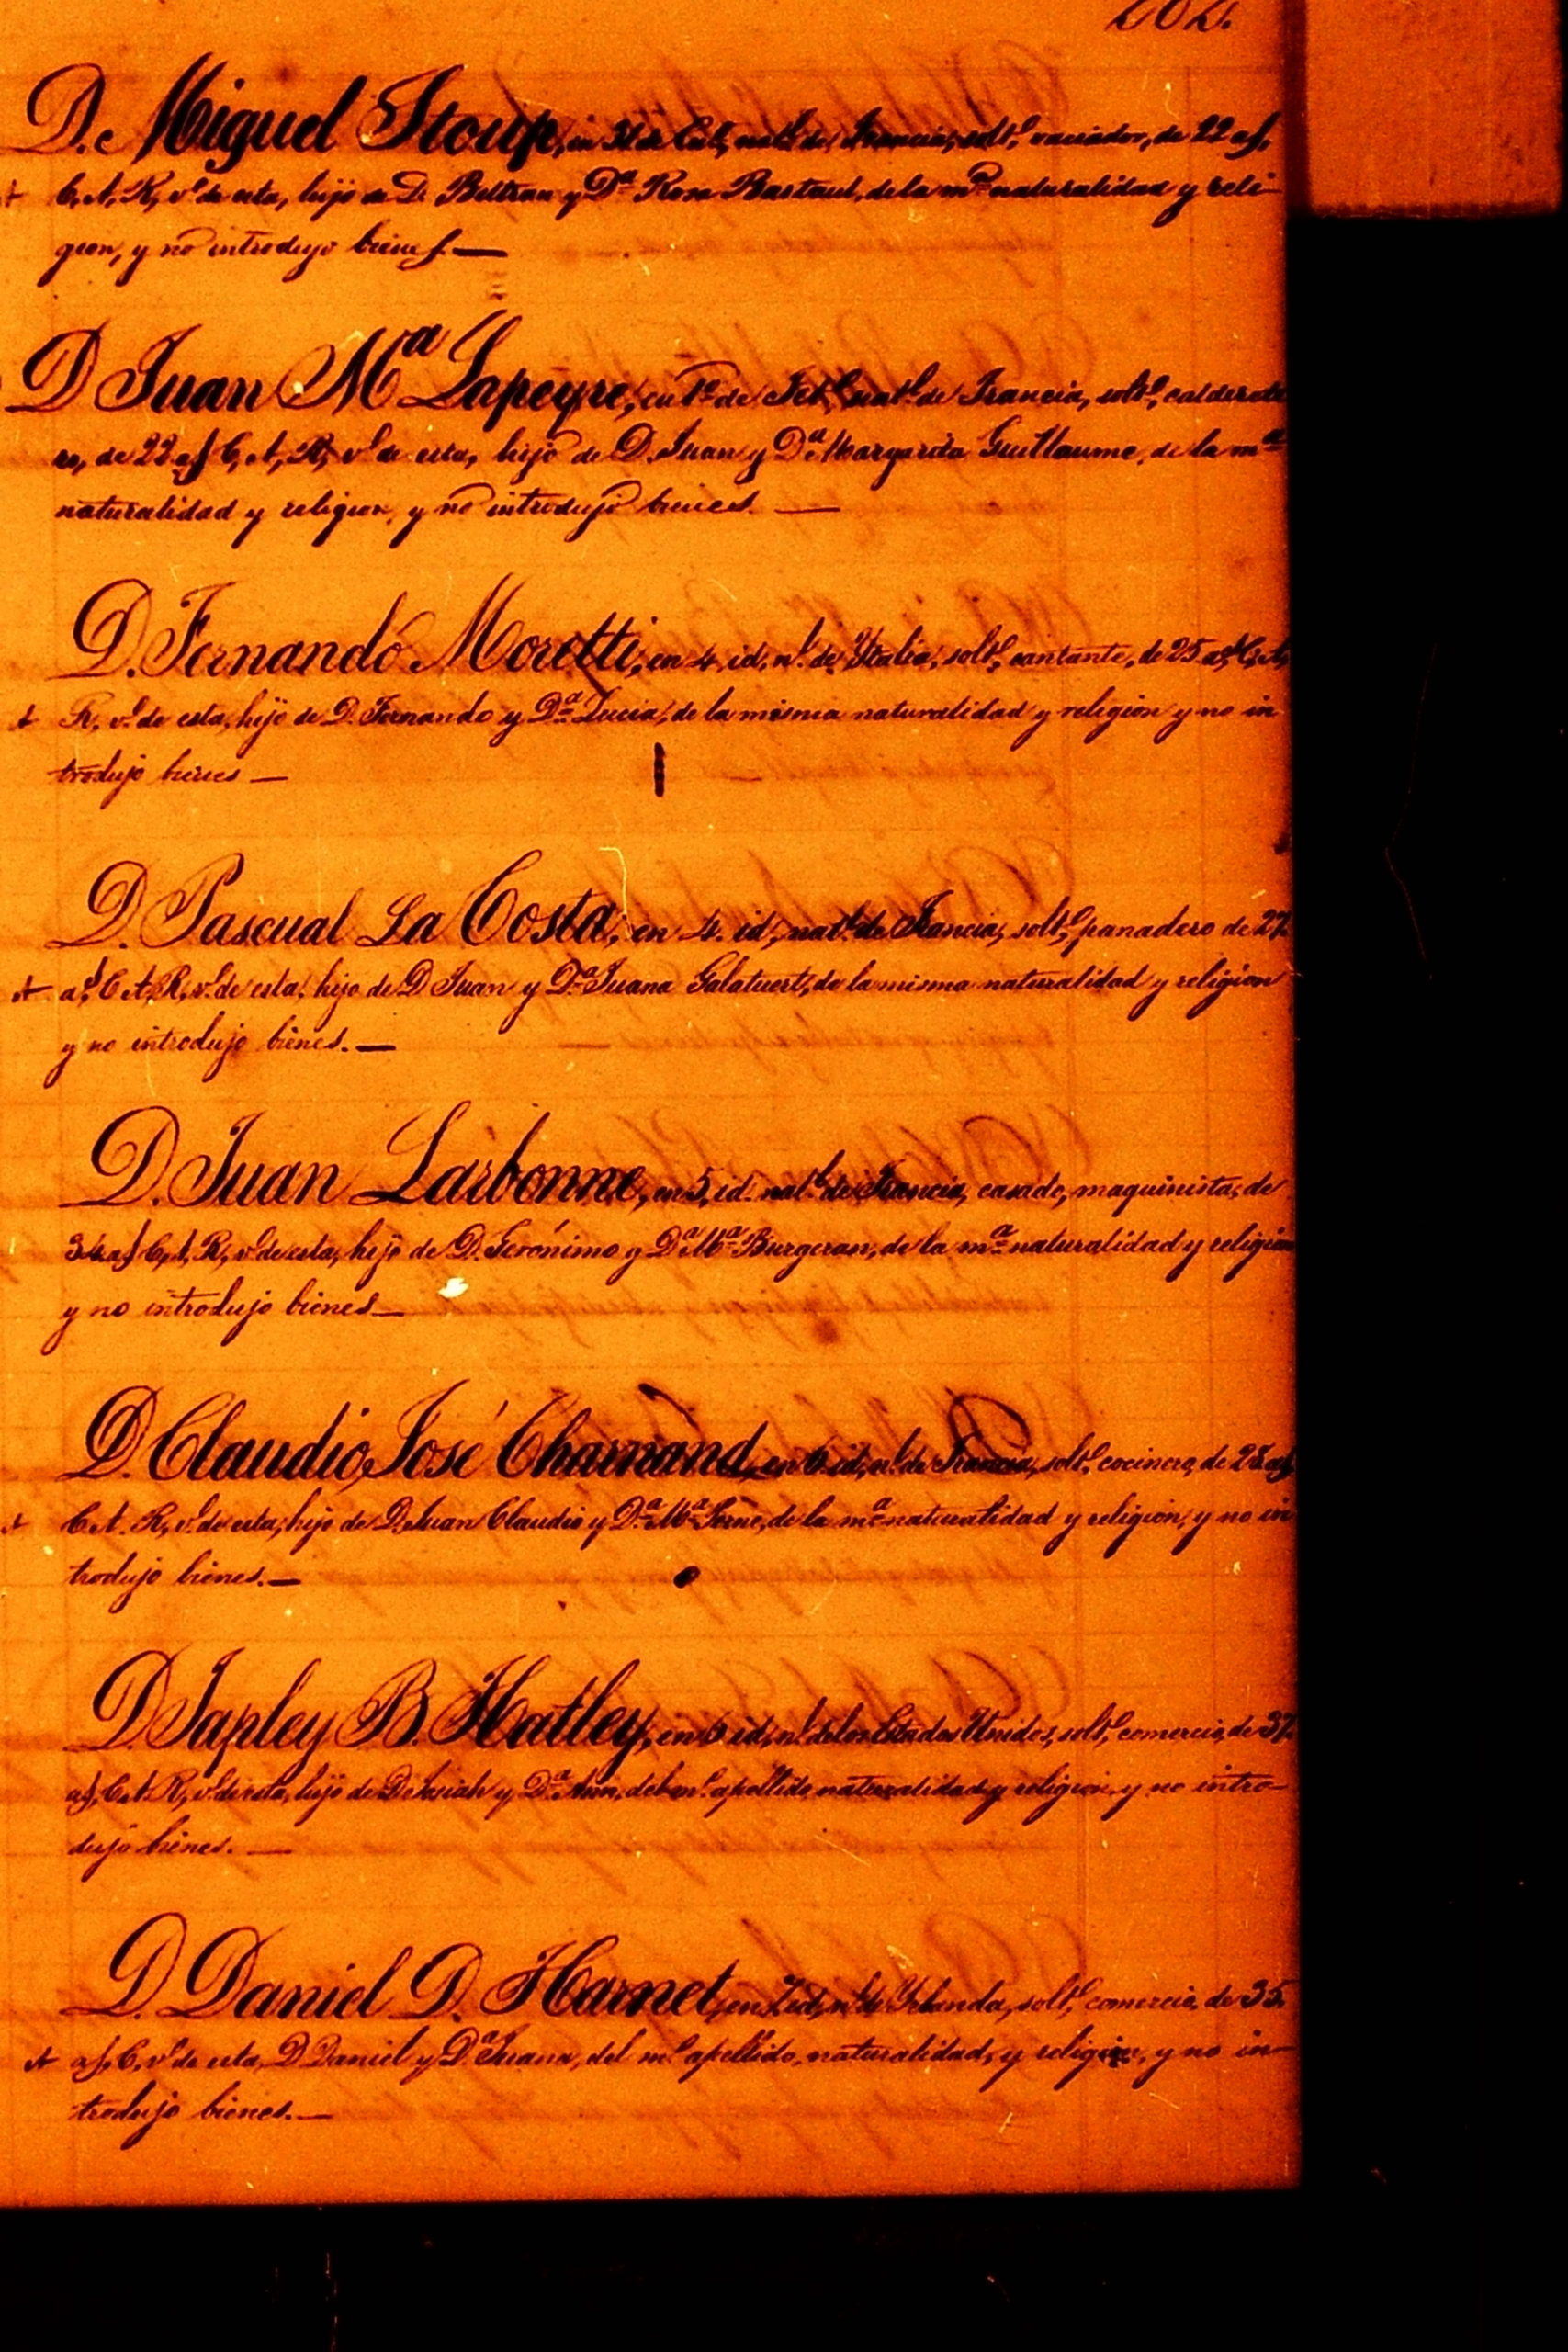 202.
D. Miguel Stoup, en 31 de Eno, natl. de Francia, solto. vaciador, de 22 as.
C, A, R, vo. de esta, hijo de D. Beltran y Da. Rosa Bartaul, de la ma. naturalidad y reli-
gion, y no introdujo bienes. —
D Juan Ma. Lapeyre, en 1o. de Feb., natl. de Francia, solto., caldere-
ro, de 22 as C, A, R, vo. de esta, hijo de D. Juan y Da. Margarita Guillaume, de la ma.
naturalidad y religion, y no introdujo bienes. —
D. Fernando Moretti, en 4 id, nl. de Ytalia, solto. cantante, de 25 as, C, A,
R, vo. de esta, hijo de D. Fernando y Da. Lucia, de la misma naturalidad y religion y no in-
trodujo bienes —
D. Pascual La Costa, en 4. id, natl. de Francia, solto. panadero de 27.
as, C A, R, vo. de esta, hijo de D. Juan y Da. Juana Galatuert, de la misma naturalidad y religion
y no introdujo bienes. —
D. Juan Larbonne, en 5, id. natl. de Francia, casado, maquinista, de
34 as C, A, R, vo. de esta, hijo de D. Gerónimo y Da. Ma. Burgeran, de la ma. naturalidad y religion
y no introdujo bienes —
D. Claudio José Charnand, en 6 id, nl. de Francia, solto. cocinero, de 28 as
C. A. R, vo. de esta, hijo de D. Juan Claudio y Da. Ma. Serne, de la ma. naturalidad y religion, y no in
trodujo bienes. —
D. Tapley B. Hatley, en 6 id, nl. de los Estados Unidos, solto. comercio, de 37.
as, C. A. R, vo. de esta, hijo de D. Josiah y Da. Ann, del mo. apellido naturalidad y religion, y no intro-
dujo bienes. —
D. Daniel D. Harnet, en 7 id, nl. de Yrlanda, solto. comercio, de 35.
as, C, vo. de esta, D Daniel y Da. Juana, del mo. apellido, naturalidad, y religion, y no in-
trodujo bienes. —